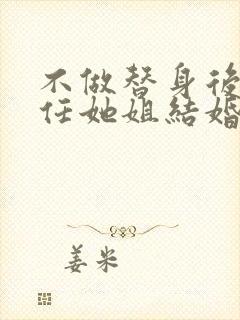 不做替身後
任她姐結婚
姜米